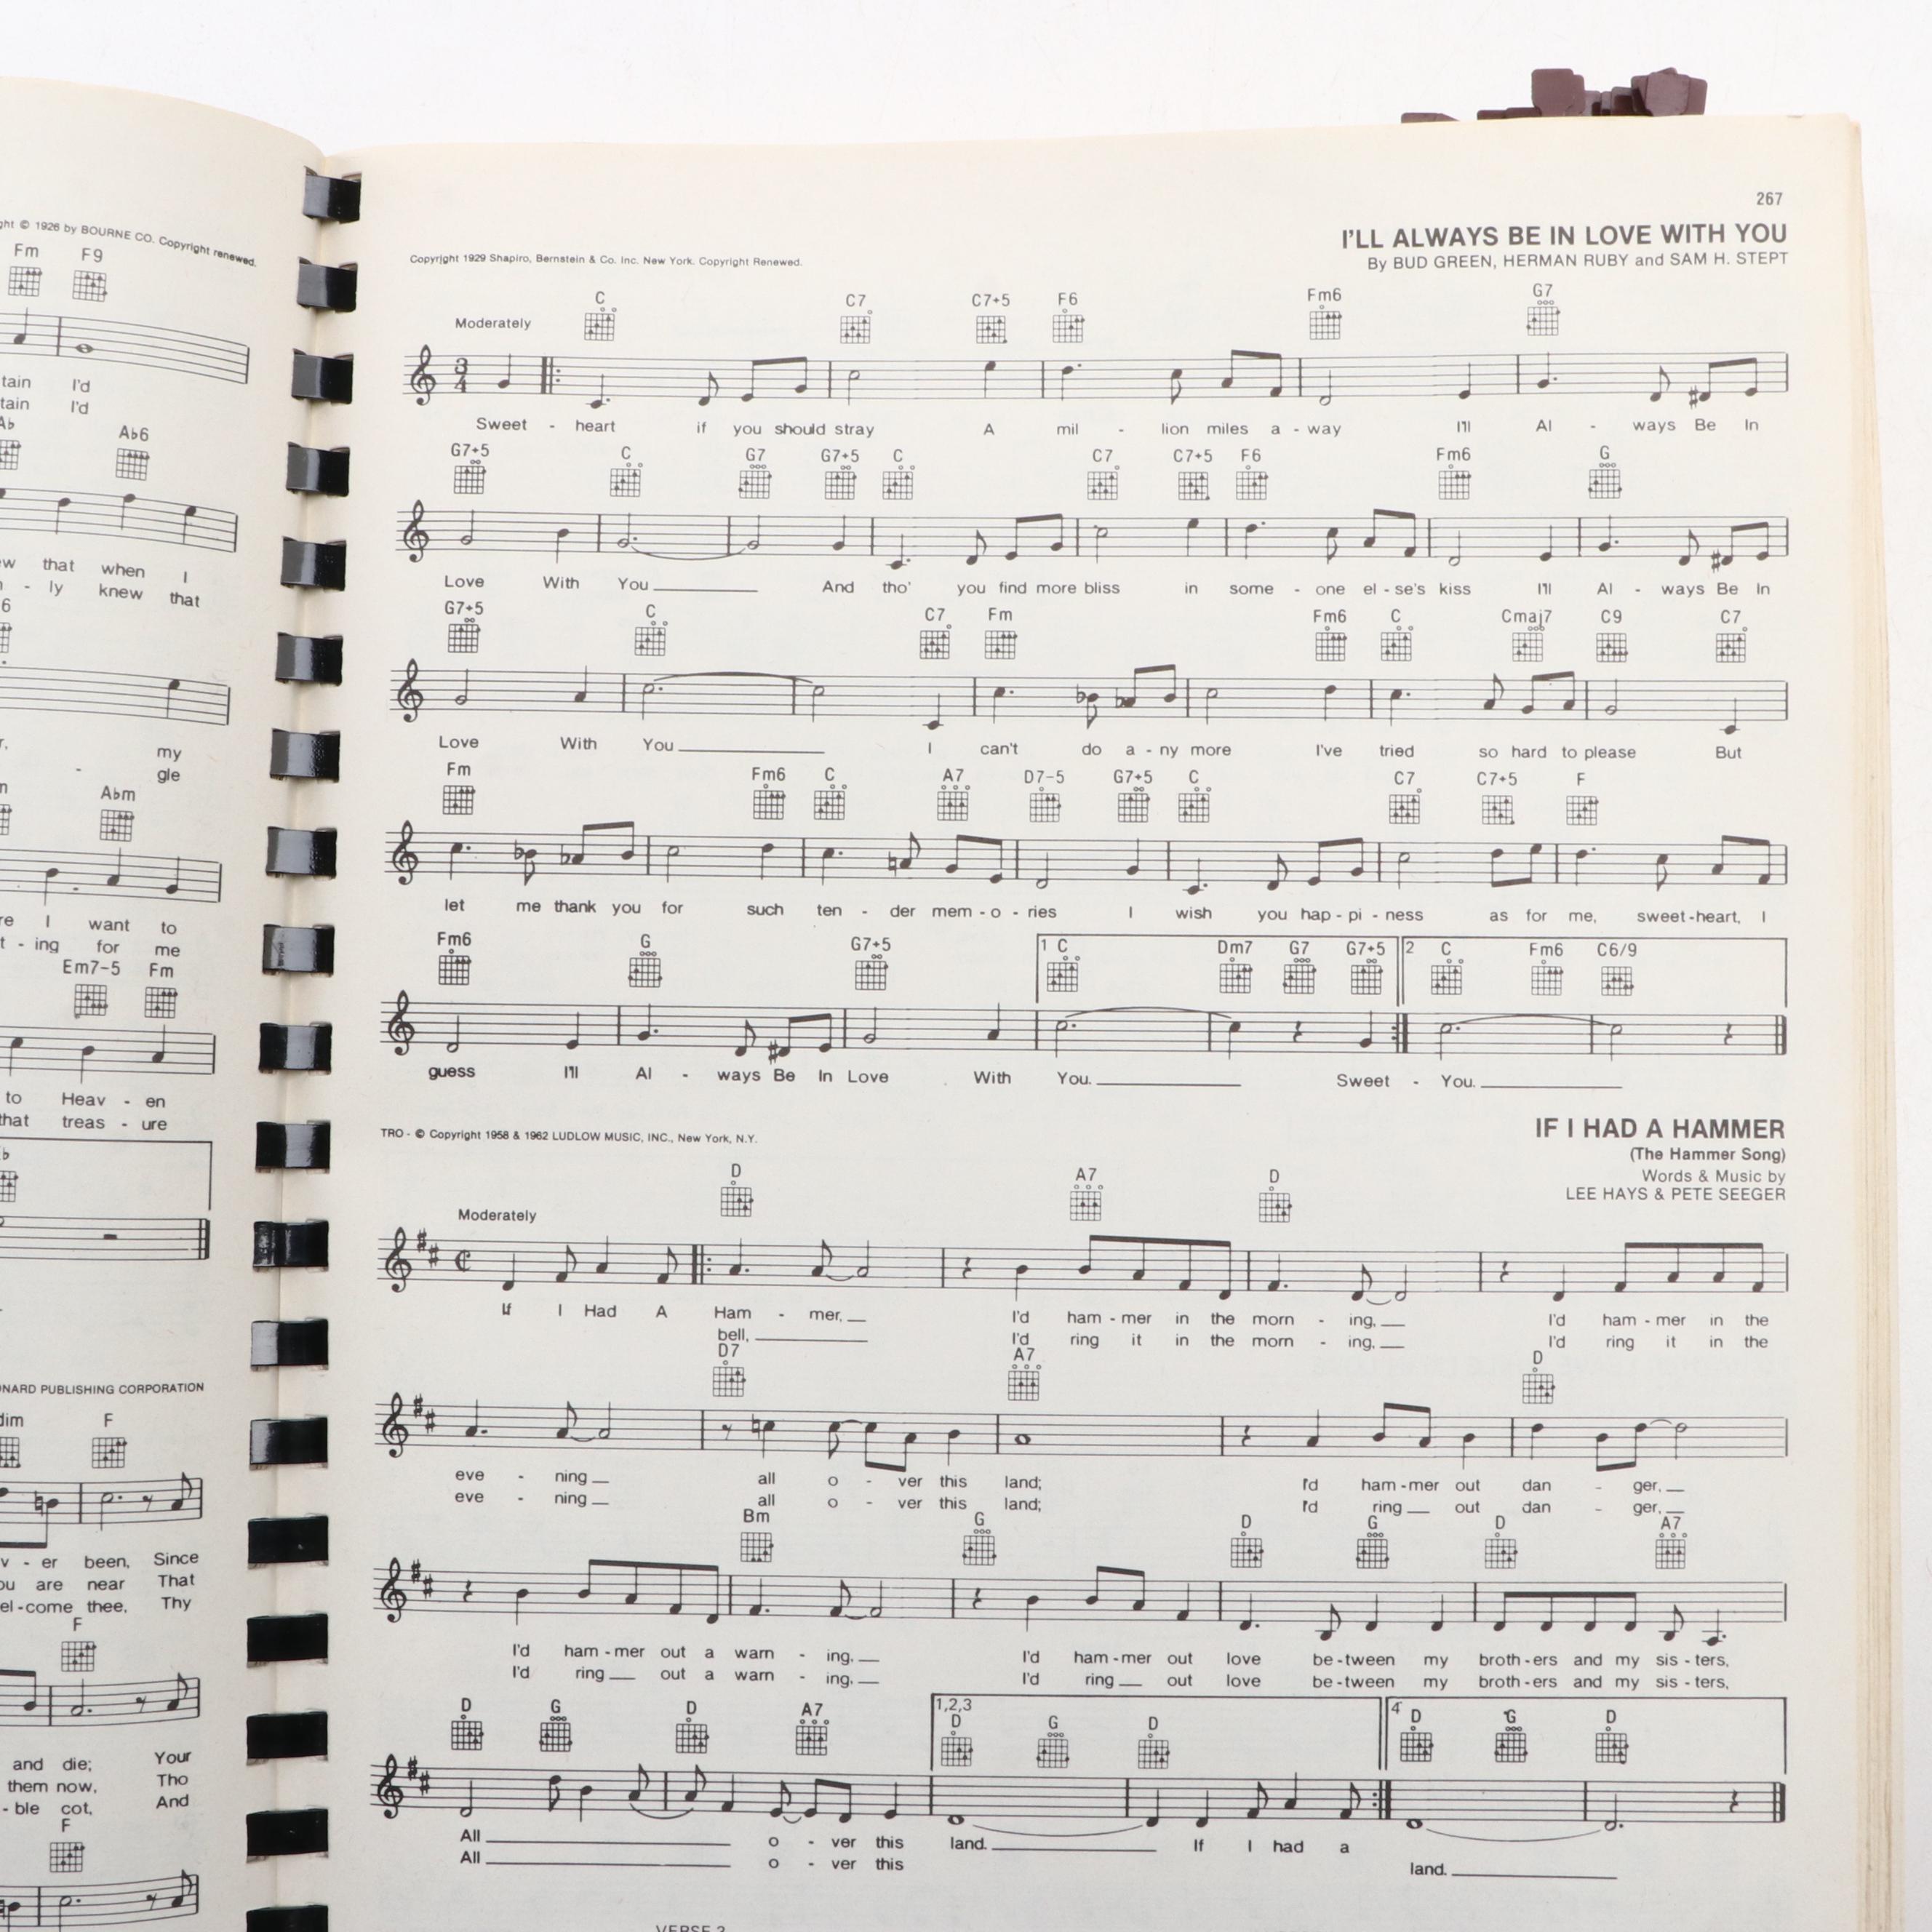 ght © 1926 by BOURNE CO. Copyright renewed.
Fm F9
tain I'd
tain I'd
Ab Ab6
that when I
- ly knew that
6
my
- gle
Abm
I want to
t - ing for me
Em7-5 Fm
to Heav - en
that treas - ure
b
NARD PUBLISHING CORPORATION
dim F
v - er been, Since
ou are near That
el - come thee, Thy
F
and die; Your
them now, Tho
- ble cot, And
F
267
I'LL ALWAYS BE IN LOVE WITH YOU
Copyright 1929 Shapiro, Bernstein & Co. Inc. New York. Copyright Renewed.
By BUD GREEN, HERMAN RUBY and SAM H. STEPT
C C7 C7+5 F6 Fm6 G7
Moderately
3
4
Sweet - heart if you should stray A mil - lion miles a - way I'll Al - ways Be In
G7+5 C G7 G7+5 C C7 C7+5 F6 Fm6 G
Love With You And tho' you find more bliss in some - one el - se's kiss I'll Al - ways Be In
G7+5 C C7 Fm Fm6 C Cmaj7 C9 C7
Love With You I can't do a - ny more I've tried so hard to please But
Fm Fm6 C A7 D7-5 G7+5 C C7 C7+5 F
let me thank you for such ten - der mem - o - ries I wish you hap - pi - ness as for me, sweet - heart, I
Fm6 G G7+5 1 C Dm7 G7 G7+5 2 C Fm6 C6/9
guess I'll Al - ways Be In Love With You. Sweet - You.
IF I HAD A HAMMER
TRO - © Copyright 1958 & 1962 LUDLOW MUSIC, INC., New York, N.Y.
(The Hammer Song)
Words & Music by
LEE HAYS & PETE SEEGER
D A7 D
Moderately
If I Had A Ham - mer, I'd ham - mer in the morn - ing, I'd ham - mer in the
bell, I'd ring it in the morn - ing, I'd ring it in the
D7 A7 D
eve - ning all o - ver this land; I'd ham - mer out dan - ger,
eve - ning all o - ver this land; I'd ring out dan - ger,
Bm G D G D A7
I'd ham - mer out a warn - ing, I'd ham - mer out love be - tween my broth - ers and my sis - ters,
I'd ring out a warn - ing, I'd ring out love be - tween my broth - ers and my sis - ters,
D G D A7 1,2,3 D G D 4 D G D
All o - ver this land. If I had a
All o - ver this land.
VERSE 3